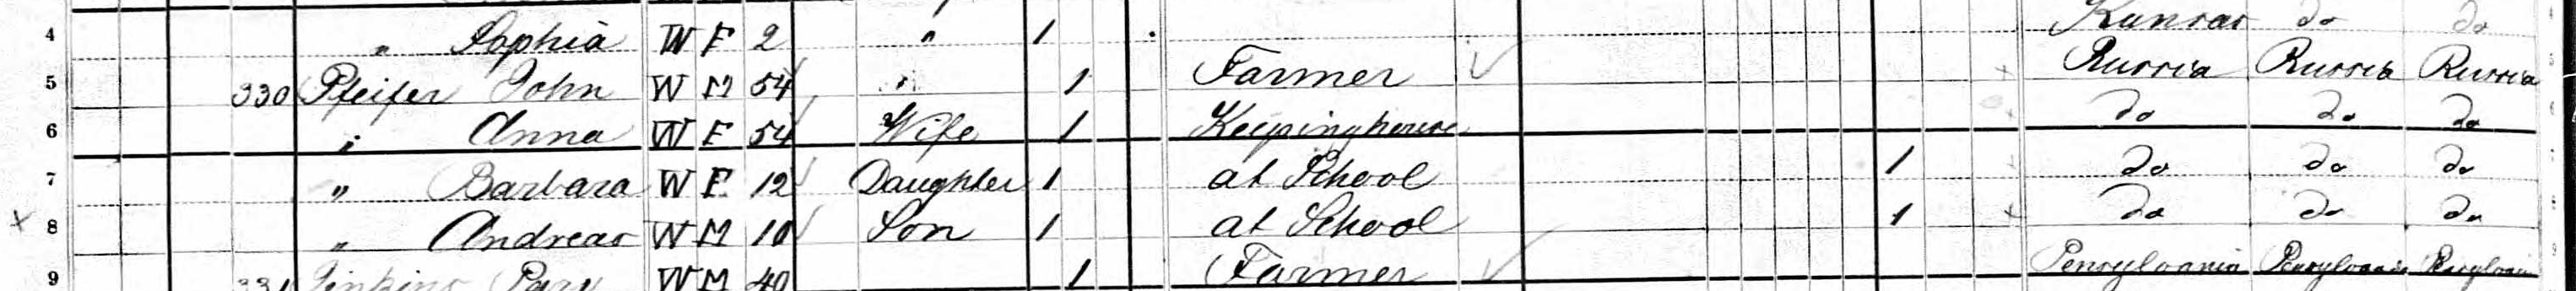 4 " Sophia W F 2 " 1 Kansas do do
5 330 Pfeifer John W M 54 1 Farmer Russia Russia Russia
6 " Anna W F 54 Wife 1 Keepinghouse do do do
7 " Barbara W F 12 Daughter 1 at School 1 do do do
8 " Andreas W M 10 Son 1 at School 1 do do do
9 331 Jenkins W M 40 1 Farmer Pensylvania Pensylvania